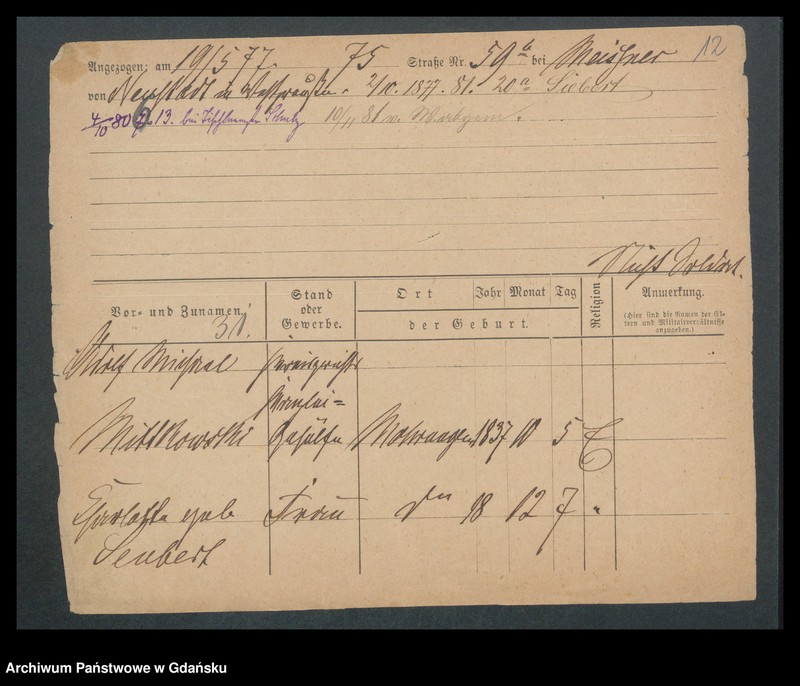 12
Angezogen: am 19/5 77. 75 Straße Nr. 59 a bei Meissner
von Neustadt in Westpreußen. 2/10. 1877. 81. 20a Siebert
4/10 80 13. bei Schulz 10/11 81 n.
Nicht Soldat.
Vor- und Zunamen. Stand oder Gewerbe. Ort Jahr Monat Tag der Geburt. Religion Anmerkung.
(Hier sind die Namen der Eltern und Militairverhältnisse anzugeben.)
31.
Adolf Michael Kreisgerichts
Kanzlei=
Mittkowski Gehülfe Mohrungen 1837 10 5 E
Charlotte geb. Frau do 18 12 7 "
Seubert
Archiwum Państwowe w Gdańsku